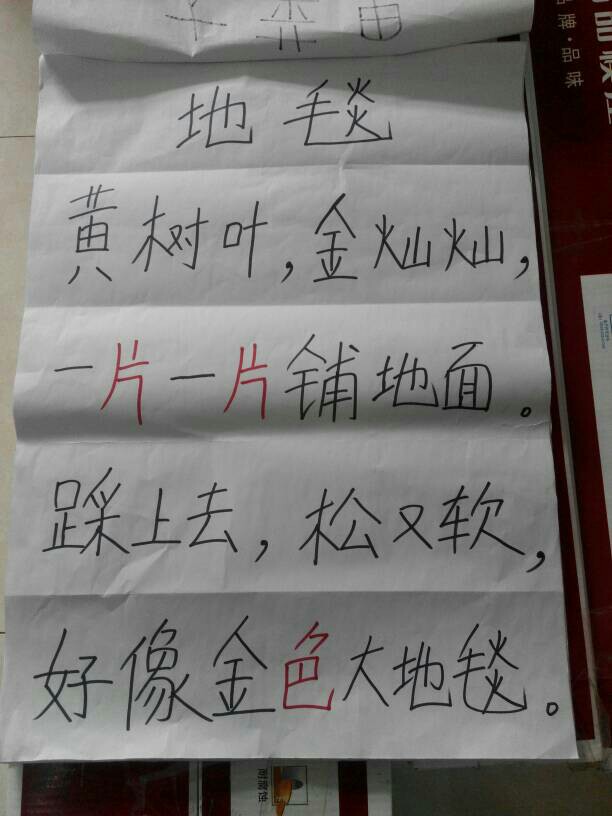 地毯
黄树叶,金灿灿,
一片一片铺地面。
踩上去,松又软,
好像金色大地毯。
品牌·品味